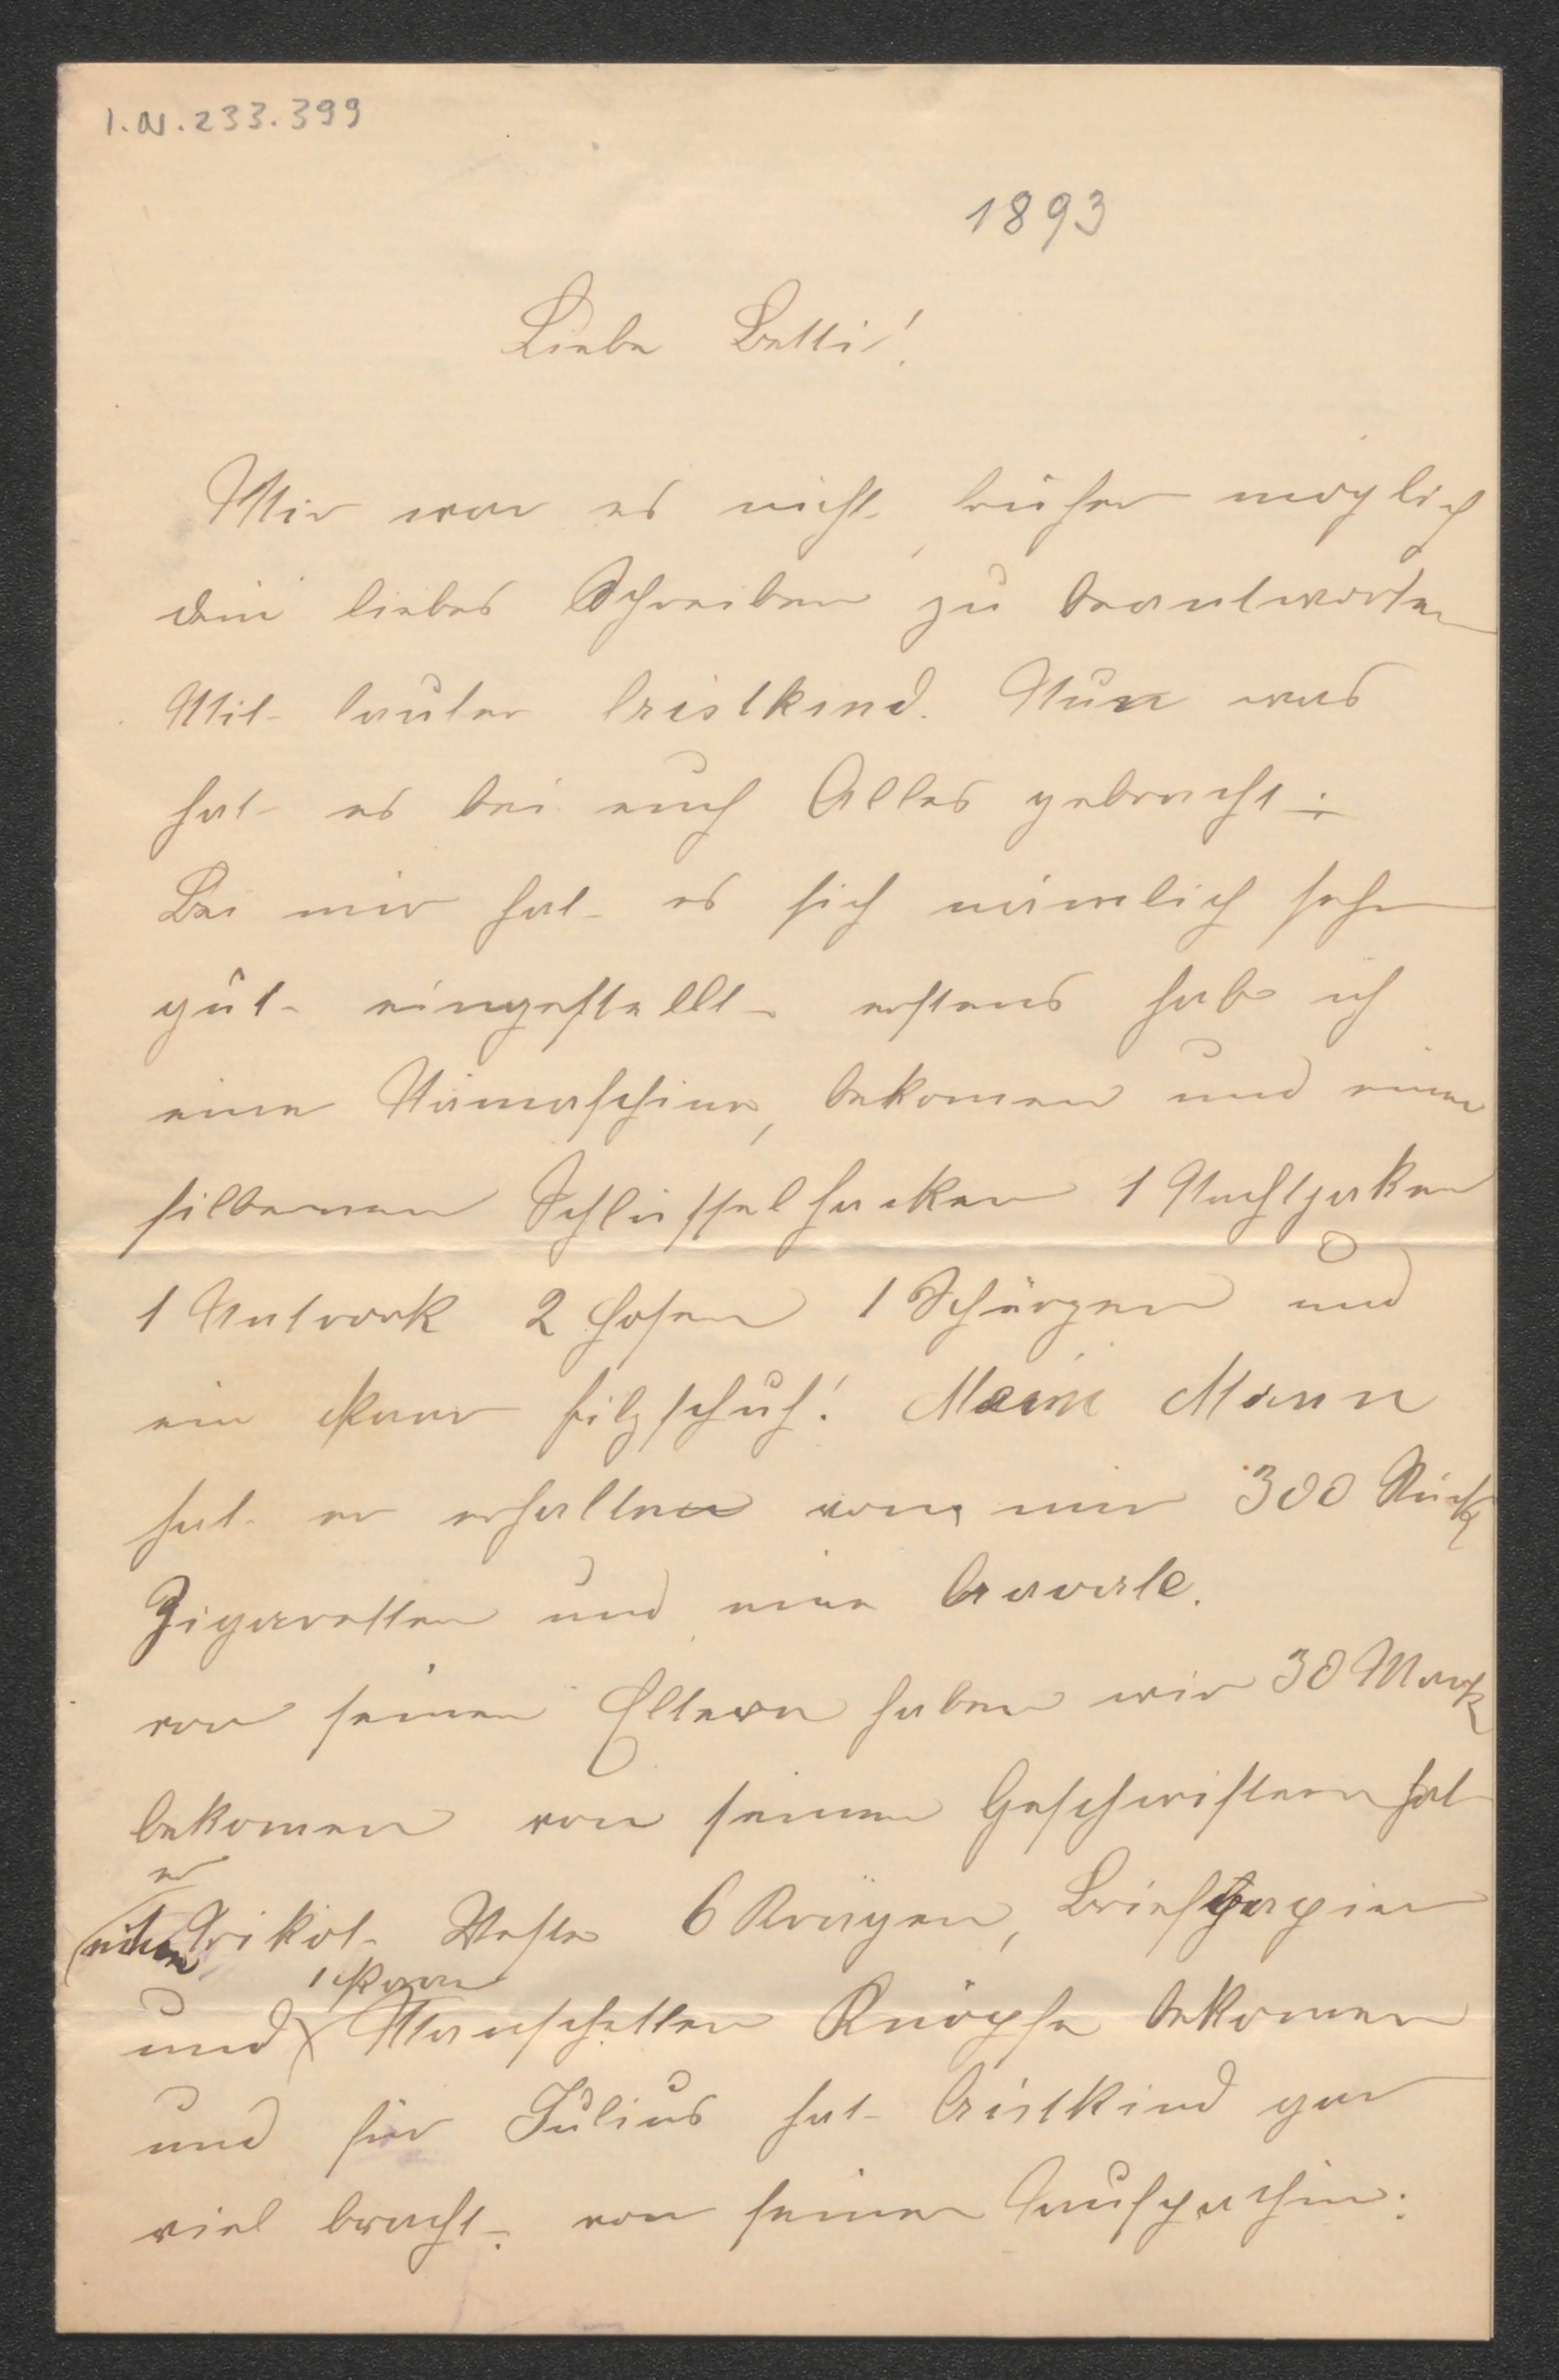 I.N. 233.399
1893
Liebe Betti!
Mir war es nicht früher möglich
dein liebes Schreiben zu beantworten
Mit lauter Cristkind. Nun was
hat es bei euch Alles gebracht:
Bei mir hat es sich nämlich sehr
gut eingestellt erstens hab ich
eine Nämaschine, bekomen und einen
silbernen Schlüsselhacken 1 Nachtjaken
1 Untrock 2 Hosen 1 Schürzen und
ein Paar Filzschuh! Mein Mann
hat er erhalten von mir 300 Stück
Zigaretten und eine Cravate.
von seinen Eltern haben wir 30 Mark
bekomen von seinen Geschwistern hat
er
eine Trikot Weste 6 Krägen, Briefpapier
1 Paar
und Manschetten Knöpfe bekomen
und für Julius hat Cristkind gar
viel bracht von seiner Taufpathin: